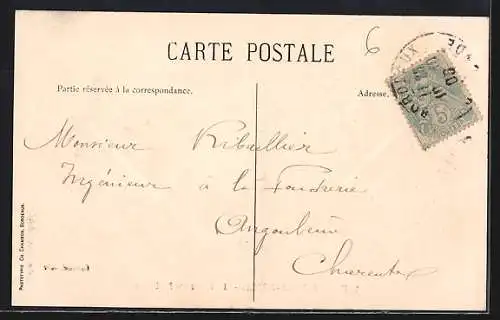 6
CARTE POSTALE
Partie réservée à la correspondance.
Adresse.
BORDEAUX
Monsieur Ribaillier
Ingénieur à la Fonderie
Angoulême
Charente
PHOTOTYPIE CH. CHAMBON, BORDEAUX